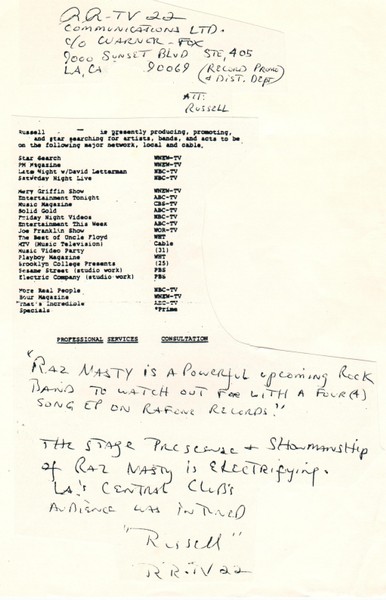 RR-TV 22
COMMUNICATIONS LTD.
c/o WARNER-FOX
9000 SUNSET BLVD STE, 405
LA, CA 90069 (RECORD PROMO
+ DIST. DEPT)
ATT:
RUSSELL
Russell is presently producing, promoting,
and star searching for artists, bands, and acts to be
on the following major network, local and cable.
Star Search WNEW-TV
PM Magazine WNEW-TV
Late Night w/David Letterman NBC-TV
Saturday Night Live NBC-TV
Merv Griffin Show WNEW-TV
Entertainment Tonight ABC-TV
Music Magazine CBS-TV
Solid Gold ABC-TV
Friday Night Videos NBC-TV
Entertainment This Week ABC-TV
Joe Franklin Show WOR-TV
The Best of Uncle Floyd WHT
MTV (Music Television) Cable
Music Video Party (31)
Playboy Magazine WHT
Brooklyn College Presents (25)
Sesame Street (studio work) PBS
Electric Company (studio work) PBS
More Real People NBC-TV
Hour Magazine WNEW-TV
That's Incredible ABC-TV
Specials *Prime
PROFESSIONAL SERVICES CONSULTATION
"RAZ NASTY IS A POWERFUL upcoming ROCK
BAND TO WATCH OUT FOR WITH A FOUR(4)
SONG EP ON RECORDS!"
THE STAGE PRESCENSE + SHOWMANSHIP
of RAZ NASTY is ELECTRIFYING.
LA'S CENTRAL CLUB'S
AUDIENCE WAS IN TUNED
"Russell"
RR-TV 22